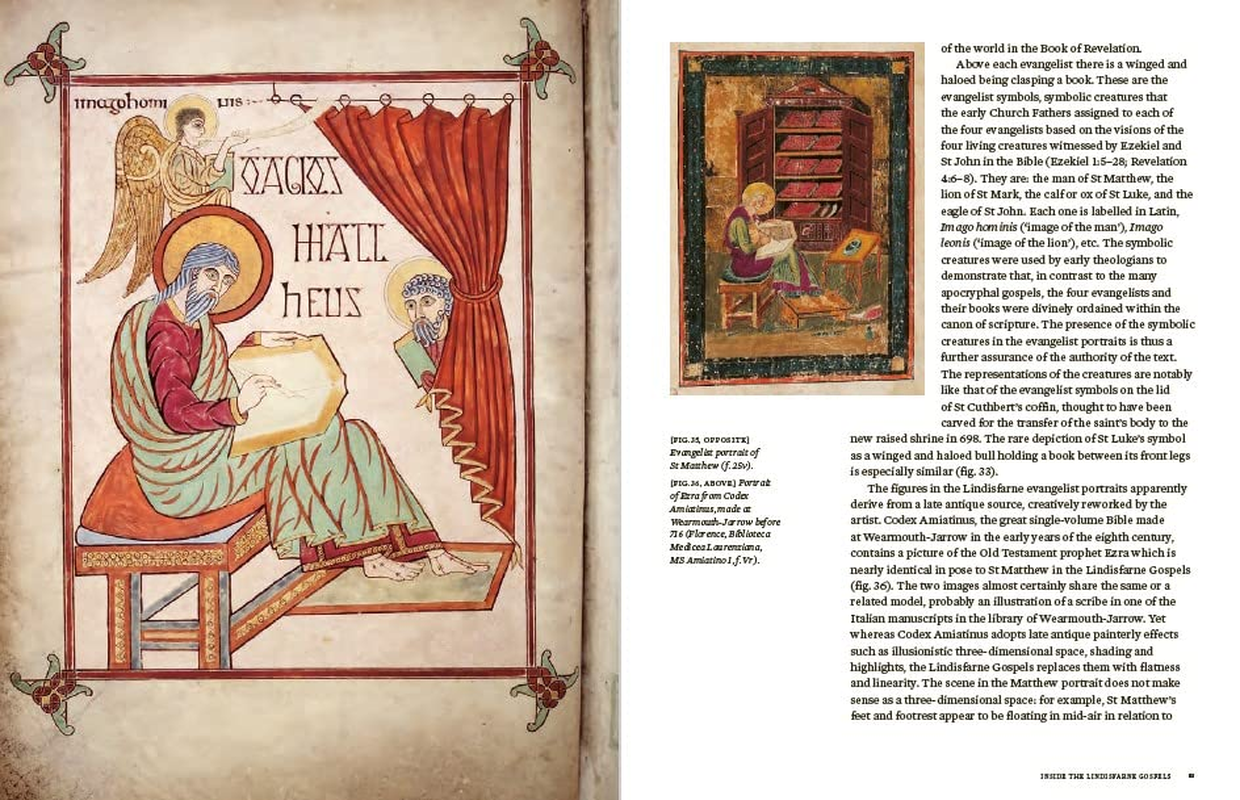 imagohomi nis
OAGIOS
MATT
heus
of the world in the Book of Revelation.
Above each evangelist there is a winged and
haloed being clasping a book. These are the
evangelist symbols, symbolic creatures that
the early Church Fathers assigned to each of
the four evangelists based on the visions of the
four living creatures witnessed by Ezekiel and
St John in the Bible (Ezekiel 1:5–28; Revelation
4:6–8). They are: the man of St Matthew, the
lion of St Mark, the calf or ox of St Luke, and the
eagle of St John. Each one is labelled in Latin,
Imago hominis (‘image of the man’), Imago
leonis (‘image of the lion’), etc. The symbolic
creatures were used by early theologians to
demonstrate that, in contrast to the many
apocryphal gospels, the four evangelists and
their books were divinely ordained within the
canon of scripture. The presence of the symbolic
creatures in the evangelist portraits is thus a
further assurance of the authority of the text.
The representations of the creatures are notably
like that of the evangelist symbols on the lid
of St Cuthbert’s coffin, thought to have been
carved for the transfer of the saint’s body to the
new raised shrine in 698. The rare depiction of St Luke’s symbol
as a winged and haloed bull holding a book between its front legs
is especially similar (fig. 33).
The figures in the Lindisfarne evangelist portraits apparently
derive from a late antique source, creatively reworked by the
artist. Codex Amiatinus, the great single-volume Bible made
at Wearmouth-Jarrow in the early years of the eighth century,
contains a picture of the Old Testament prophet Ezra which is
nearly identical in pose to St Matthew in the Lindisfarne Gospels
(fig. 36). The two images almost certainly share the same or a
related model, probably an illustration of a scribe in one of the
Italian manuscripts in the library of Wearmouth-Jarrow. Yet
whereas Codex Amiatinus adopts late antique painterly effects
such as illusionistic three-dimensional space, shading and
highlights, the Lindisfarne Gospels replaces them with flatness
and linearity. The scene in the Matthew portrait does not make
sense as a three-dimensional space: for example, St Matthew’s
feet and footrest appear to be floating in mid-air in relation to
[FIG. 35, OPPOSITE]
Evangelist portrait of
St Matthew (f. 25v).
[FIG. 36, ABOVE] Portrait
of Ezra from Codex
Amiatinus, made at
Wearmouth-Jarrow before
716 (Florence, Biblioteca
Medicea Laurenziana,
MS Amiatino 1, f. Vr).
INSIDE THE LINDISFARNE GOSPELS